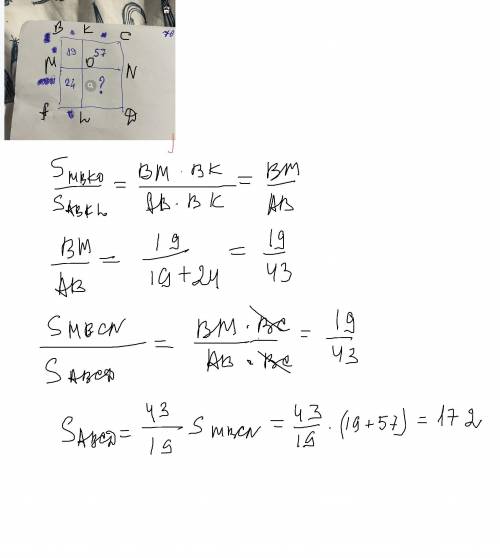 B K C
M 19 O 57 N
24 ?
A L D
S_MBKO / S_ABKL = BM · BK / AB · BK = BM / AB
BM / AB = 19 / 19+24 = 19 / 43
S_MBCN / S_ABCD = BM · BC / AB · BC = 19 / 43
S_ABCD = 43 / 19 S_MBCN = 43 / 19 · (19+57) = 172